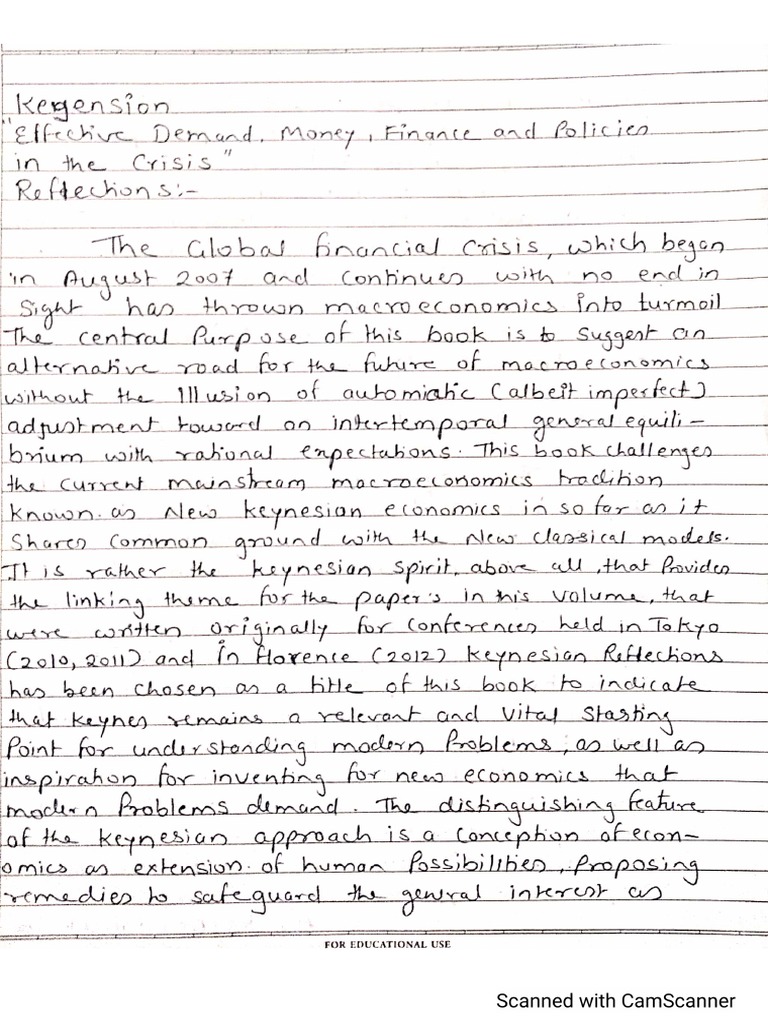 Kegension
"Effective Demand, Money, Finance and Policies
in the Crisis"
Reflections:-
The Global financial Crisis, which began
in August 2007 and Continues with no end in
Sight has thrown macroeconomics into turmoil
The central Purpose of this book is to Suggest an
alternative road for the future of macroeconomics
without the Illusion of automiatic (albeit imperfect)
adjustment toward an intertemporal general equili-
brium with rational expectations. This book challenges
the current mainstream macroeconomics tradition
known as New Keynesian economics in so far as it
Shares Common ground with the New Classical models.
It is rather the Keynesian Spirit, above all, that Provides
the linking theme for the paper's in this volume, that
were written originally for Conferences held in Tokyo
(2010, 2011) and in Florence (2012) Keynesian Reflections
has been chosen as a title of this book to indicate
that Keynes remains a relevant and vital Starting
Point for understanding modern Problems, as well as
inspiration for inventing for new economics that
modern Problems demand. The distinguishing feature
of the Keynesian approach is a Conception of econ-
omics as extension of human Possibilities, Proposing
remedies to safeguard the general interest as
FOR EDUCATIONAL USE
Scanned with CamScanner